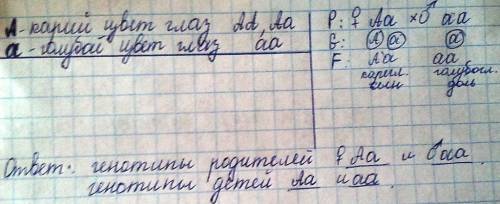 А - карий цвет глаз АА, Аа
а - голубой цвет глаз аа
Р: ♀ Аа × ♂ аа
G: А а а
F: Аа аа
кареглaз. голубогл.
сын дочь
Ответ: генотипы родителей ♀ Аа и ♂ аа.
генотипы детей Аа и аа.